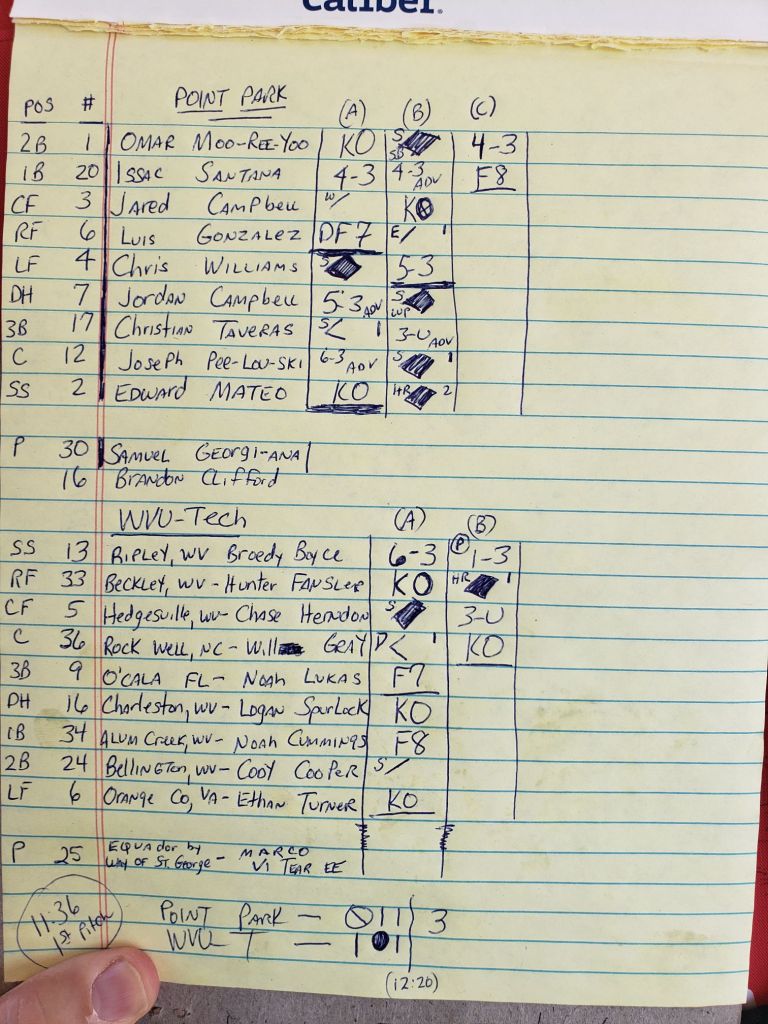 Caliber.
POINT PARK
POS # (A) (B) (C)
2B 1 OMAR MOO-REE-YOO KO S SB 4-3
1B 20 ISSAC SANTANA 4-3 4-3 ADV F8
CF 3 JARED CAMPBELL W/ KO
RF 6 LUIS GONZALEZ DF7 E/ 1
LF 4 CHRIS WILLIAMS S 5-3
DH 7 JORDAN CAMPBELL 5-3 ADV S WP
3B 17 CHRISTIAN TAVERAS S< 1 3-U ADV
C 12 JOSEPH PEE-LOU-SKI 6-3 ADV S 1
SS 2 EDWARD MATEO KO HR 2
P 30 SAMUEL GEORGI-ANA
16 BRANDON CLIFFORD
WVU-Tech (A) (B)
SS 13 RIPLEY, WV Broedy Boyce 6-3 P 1-3
RF 33 BECKLEY, WV - Hunter FANSLER KO HR 1
CF 5 Hedgesville, WV- Chase Herndon S 3-U
C 36 Rock Well, NC - Will GRAY D< 1 KO
3B 9 O'CALA FL- Noah LUKAS F7
DH 16 Charleston, WV - Logan Spurlock KO
1B 34 ALUM Creek, WV - Noah Cummings F8
2B 24 Bellington, WV - Cody Cooper S/
LF 6 Orange Co, VA - Ethan Turner KO
P 25 EQUADOR by
WAY OF ST. George - MARCO
VI TEAR EE
11:36
1st Pitch
POINT PARK — 0 1 1 3
WVU T — 1 1
(12:20)